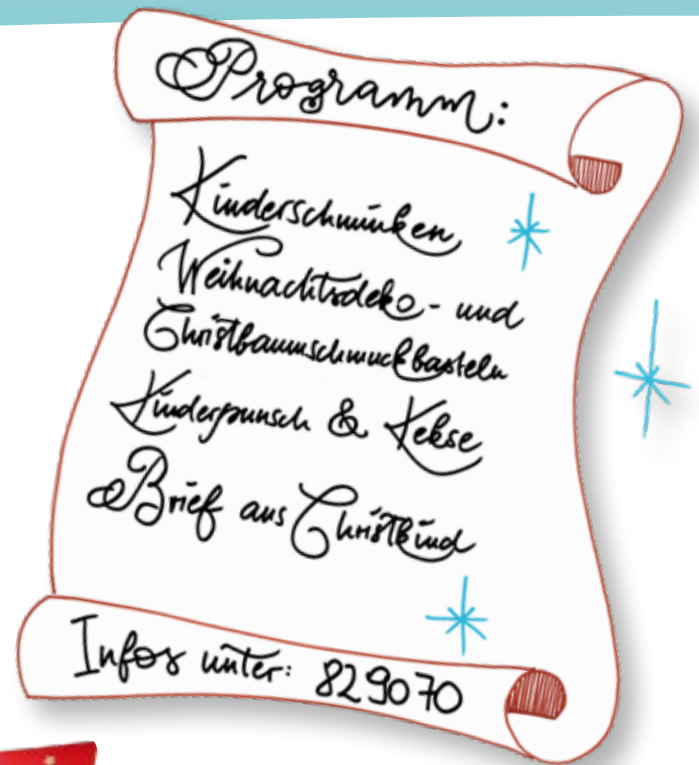 Programm:
Kinderschminken
Weihnachtsdeko- und
Christbaumschmuckbasteln
Kinderpunsch & Kekse
Brief ans Christkind
Infos unter: 829070